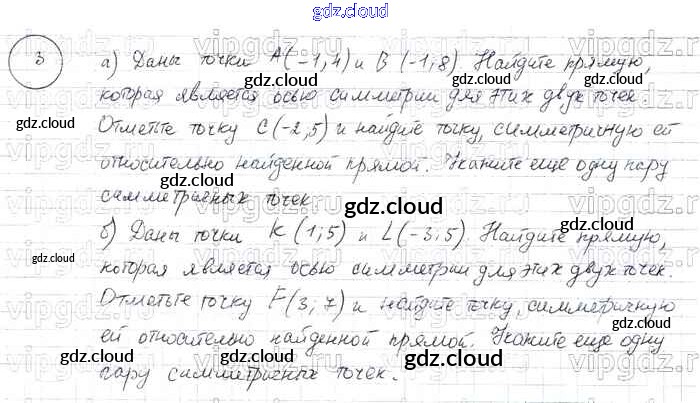 gdz.cloud
3
а) Даны точки A(-1,4) и B(-1;8). Найдите прямую,
которая является осью симметрии для этих двух точек.
Отметьте точку C(-2,5) и найдите точку, симметричную ей
относительно найденной прямой. Укажите еще одну пару
симметричных точек.
б) Даны точки K(1;5) и L(-3;5) Найдите прямую,
которая является осью симметрии для этих двух точек.
Отметьте точку F(3;7) и найдите точку, симметричную
ей относительно найденной прямой. Укажите еще одну
пару симметричных точек.